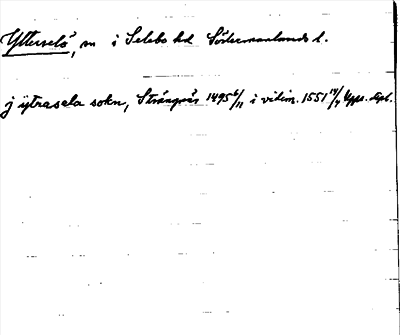 Ytterselö, sn i Selebo hd Södermanlands l.
j ytrasela sokn, Strängnäs 1495 6/11 i vidim. 1551 14/4 Upps. dipl.